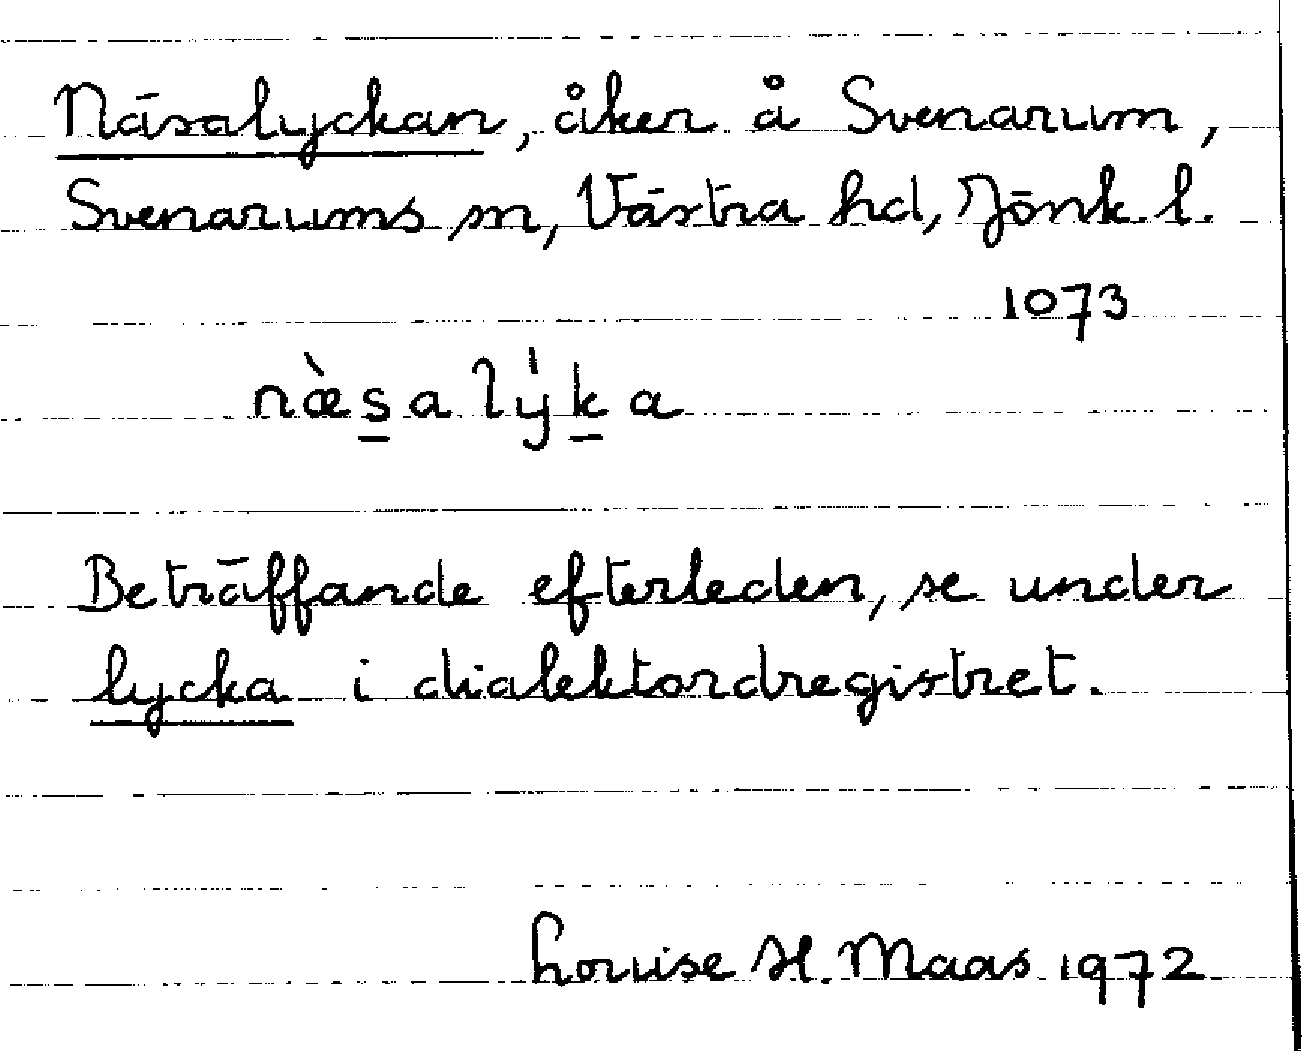 Näsalyckan, åker å Svenarum,
Svenarums sn, Västra hd, Jönk. l.
1073
næ̀s̲a lýk̲a
Beträffande efterleden, se under
lycka i dialektordregistret.
Louise H. Maas 1972